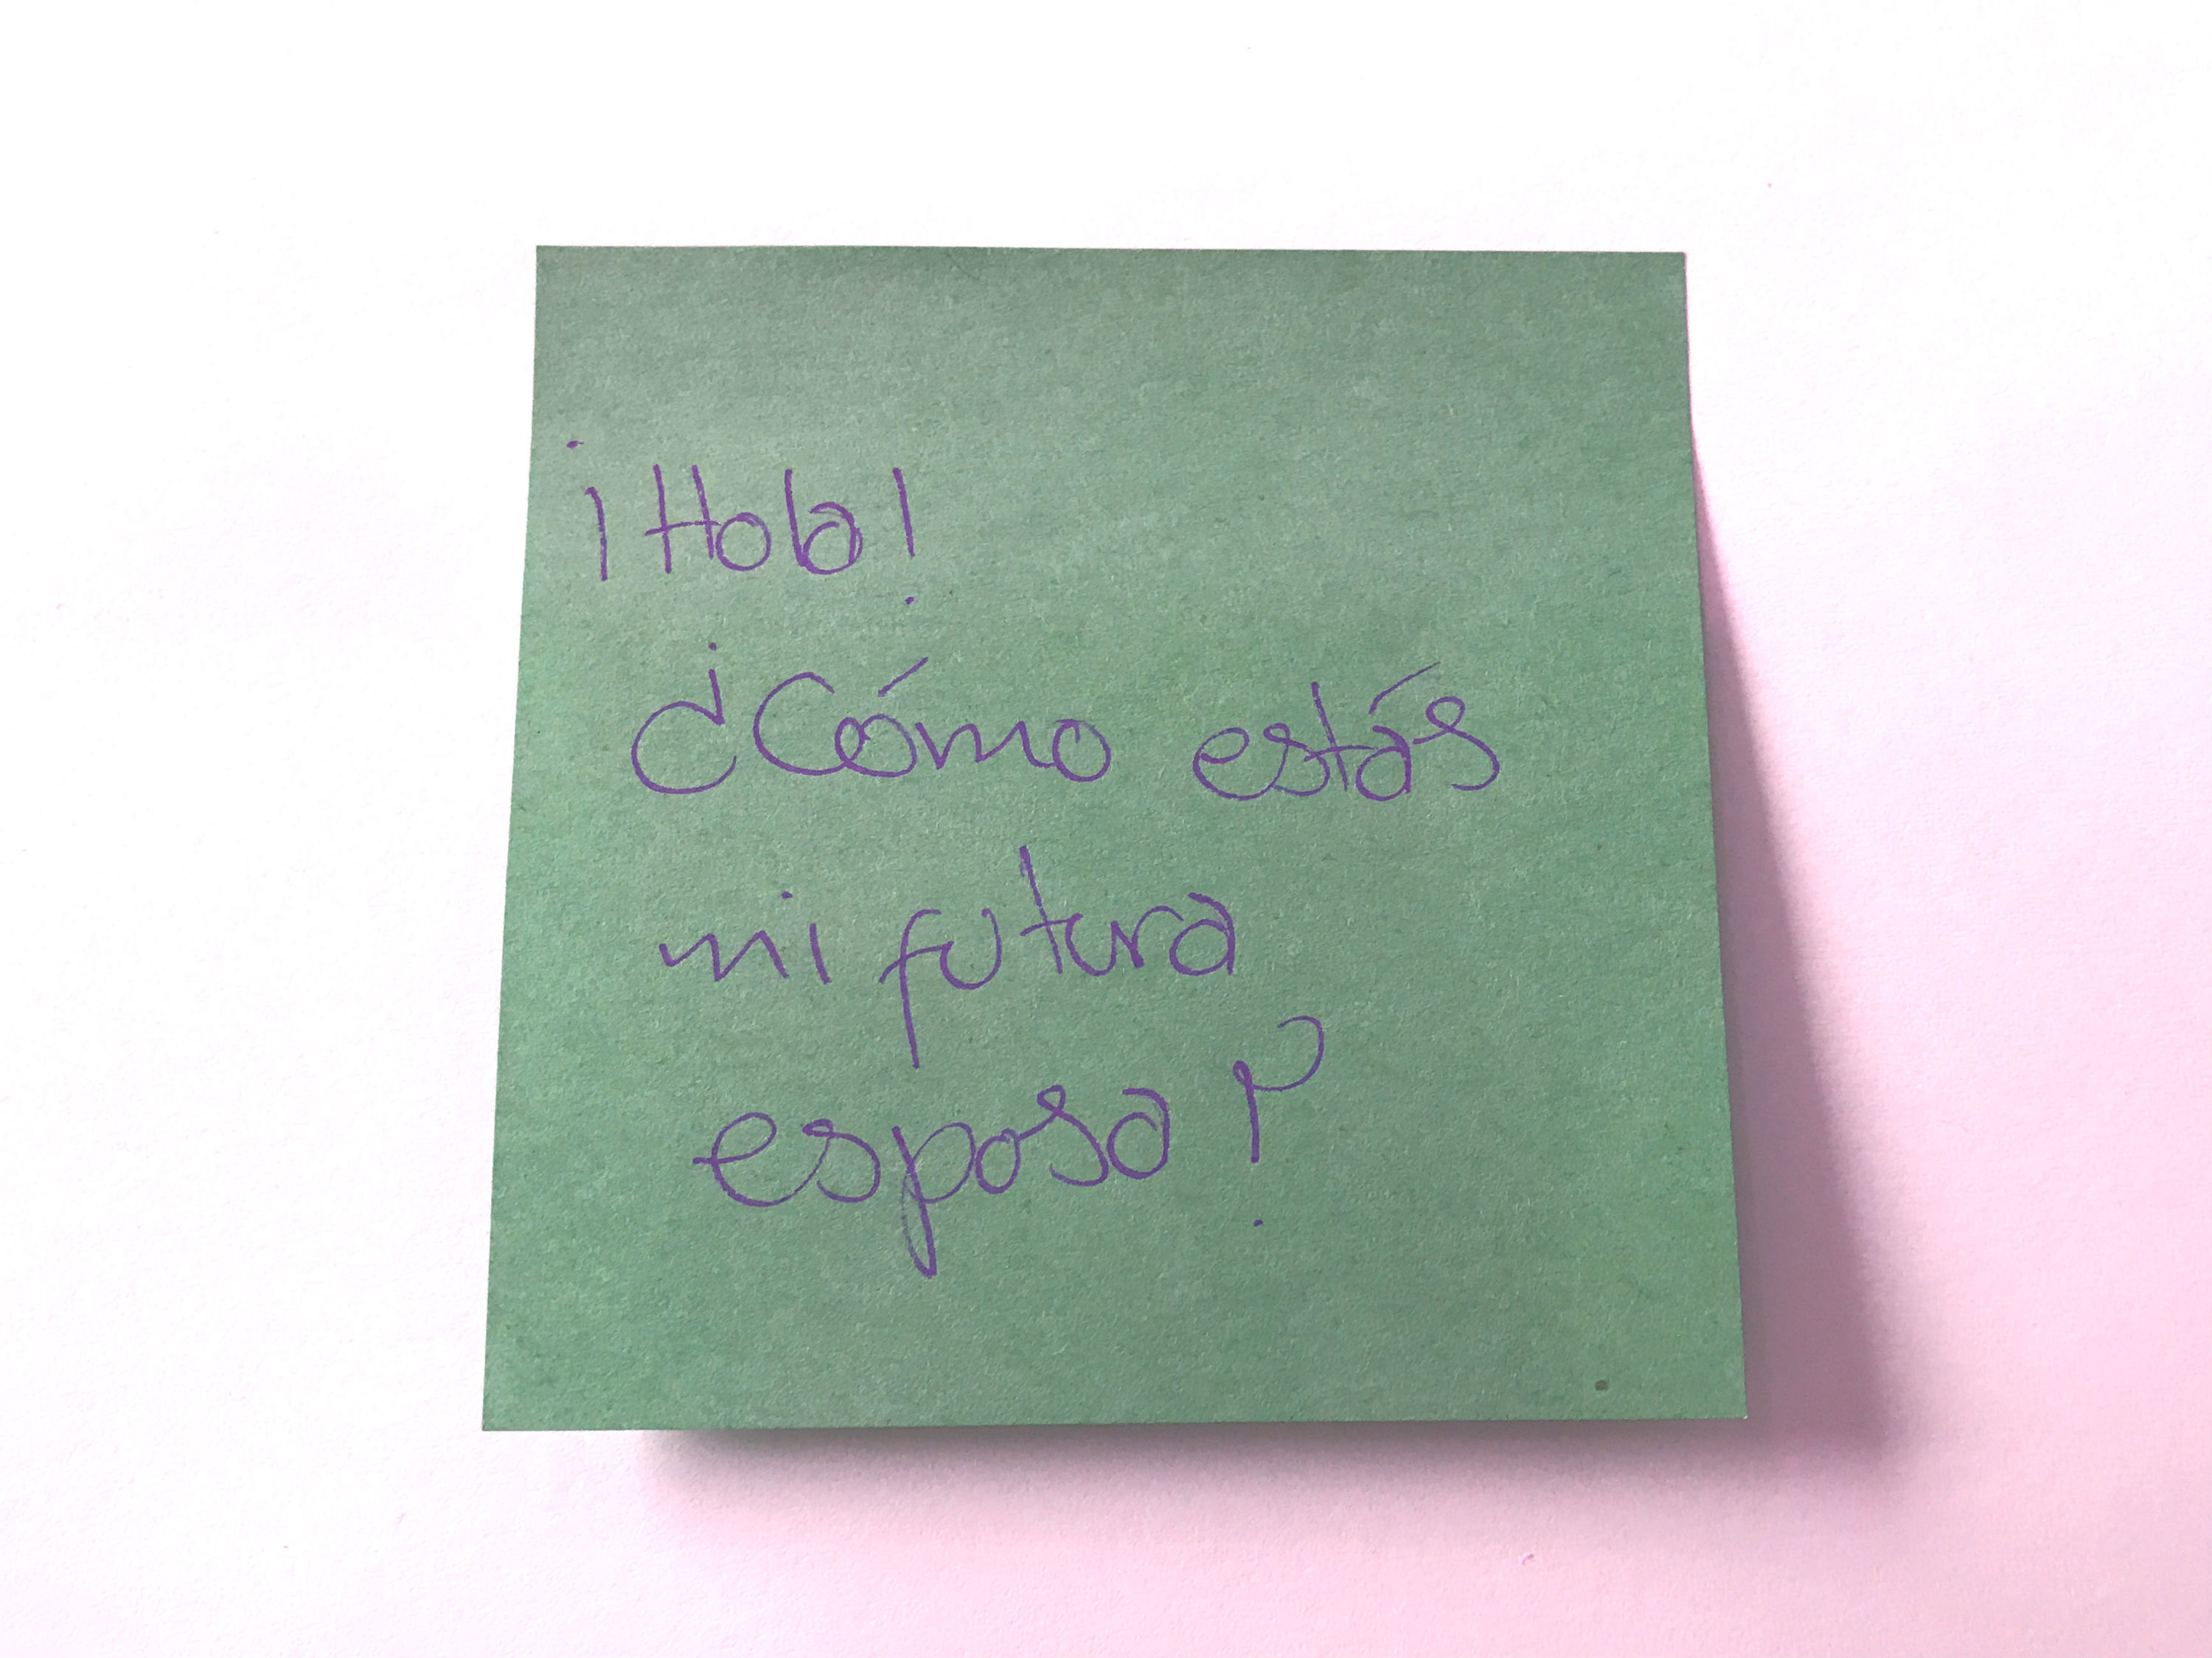 ¡Hola!
¿Cómo estás
mi futura
esposa?